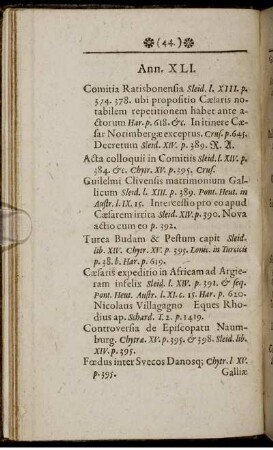 ❋ (44.) ❋
Ann. XLI.
Comitia Ratisbonensia Sleid. l. XIII. p.
374. 378. ubi propositio Cæsaris no-
tabilem repetitionem habet ante a-
ctorum Har. p. 618. &c. In itinere Cæ-
sar Norimbergæ exceptus. Crus. p. 645.
Decretum Sleid. XIV. p. 389. R. A.
Acta colloquii in Comitiis Sleid. l. XIV. p.
384. &c. Chytr. XV. p. 395. Crus.
Guilelmi Clivensis matrimonium Gal-
licum Sleid. l. XIII. p. 389. Pont. Heut. in
Austr. l. IX. 15. Intercessio pro eo apud
Cæsarem irrita Sleid. XIV. p. 390. Nova
actio cum eo p. 392.
Turca Budam & Pestum capit Sleid.
lib. XIV. Chytr. XV. p. 395. Lonic. in Turcicis
p. 38. b. Har. p. 619.
Cæsaris expeditio in Africam ad Argie-
ram infelix Sleid. l. XIV. p. 391. & seq.
Pont. Heut. Austr. l. XI. c. 15. Har. p. 620.
Nicolaus Villagagno Eques Rho-
dius ap. Schard. T. 2. p. 1419.
Controversia de Episcopatu Naum-
burg. Chytræ. XV. p. 395. & 398. Sleid. lib.
XIV. p. 395.
Fœdus inter Svecos Danosq; Chytr. l XV.
p. 395.
Galliæ